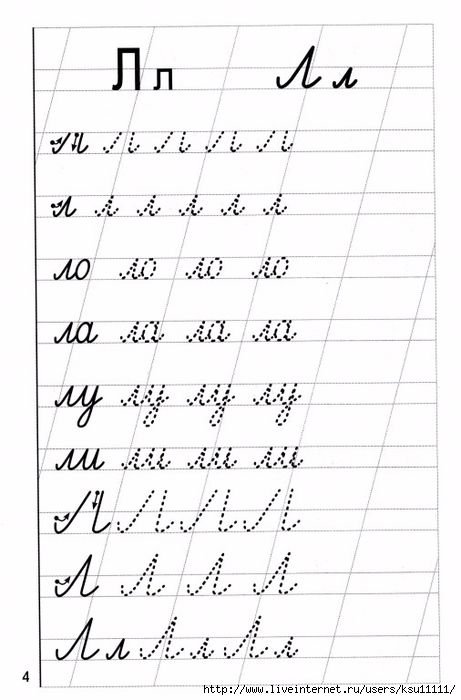 Л л Л л
л л л л л
л л л л л л
ло ло ло ло
ла ла ла ла
лу лу лу лу
ли ли ли ли
Л Л Л Л
Л Л Л Л
Л л Л л Л л
4
http://www.liveinternet.ru/users/ksu11111/